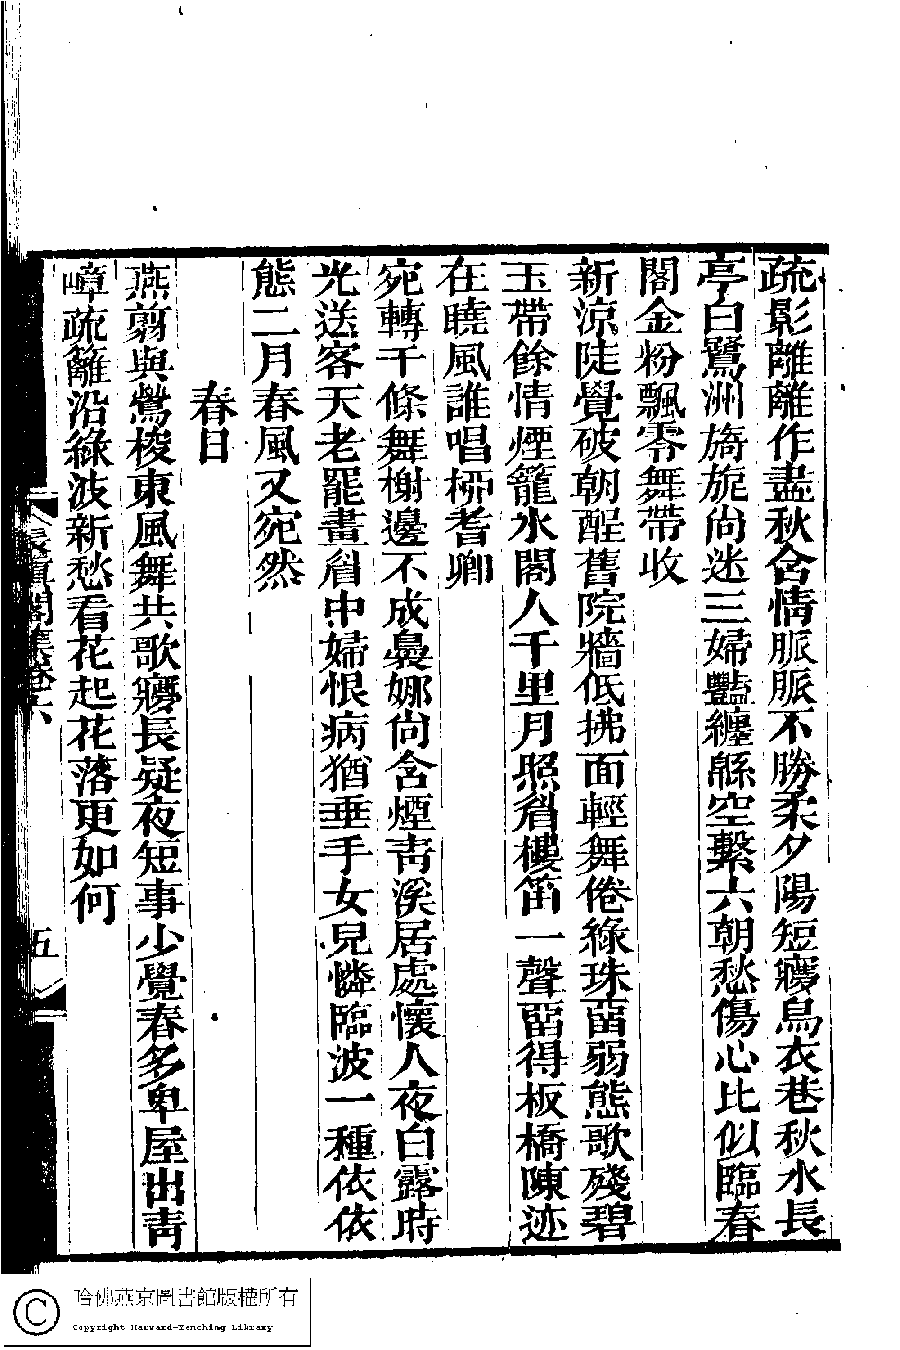 疏影離離作盡秋含情脈脈不勝柔夕陽短癭烏衣巷秋水長
亭白鷺洲旖旎尚迷三婦豔纏緜空繫六朝愁傷心比似臨春
閣金粉飄零舞帶收
新涼陡覺破朝酲舊院牆低拂面輕舞倦綠珠畱弱態歌殘碧
玉帶餘情煙籠水閣人千里月照眉樓笛一聲畱得板橋陳迹
在曉風誰唱桺耆卿
宛轉千條舞榭邊不成裊娜尙含煙靑溪居處懷人夜白露時
光送客天老罷畫眉中婦恨病猶垂手女兒憐臨波一種依依
態二月春風又宛然
春日
燕翦與鶯梭東風舞共歌寢長疑夜短事少覺春多卑屋出靑
嶂疏籬沿綠波新愁看花起花落更如何
閣集卷六
五
哈佛燕京圖書館版權所有
Copyright Harvard-Yenching Library